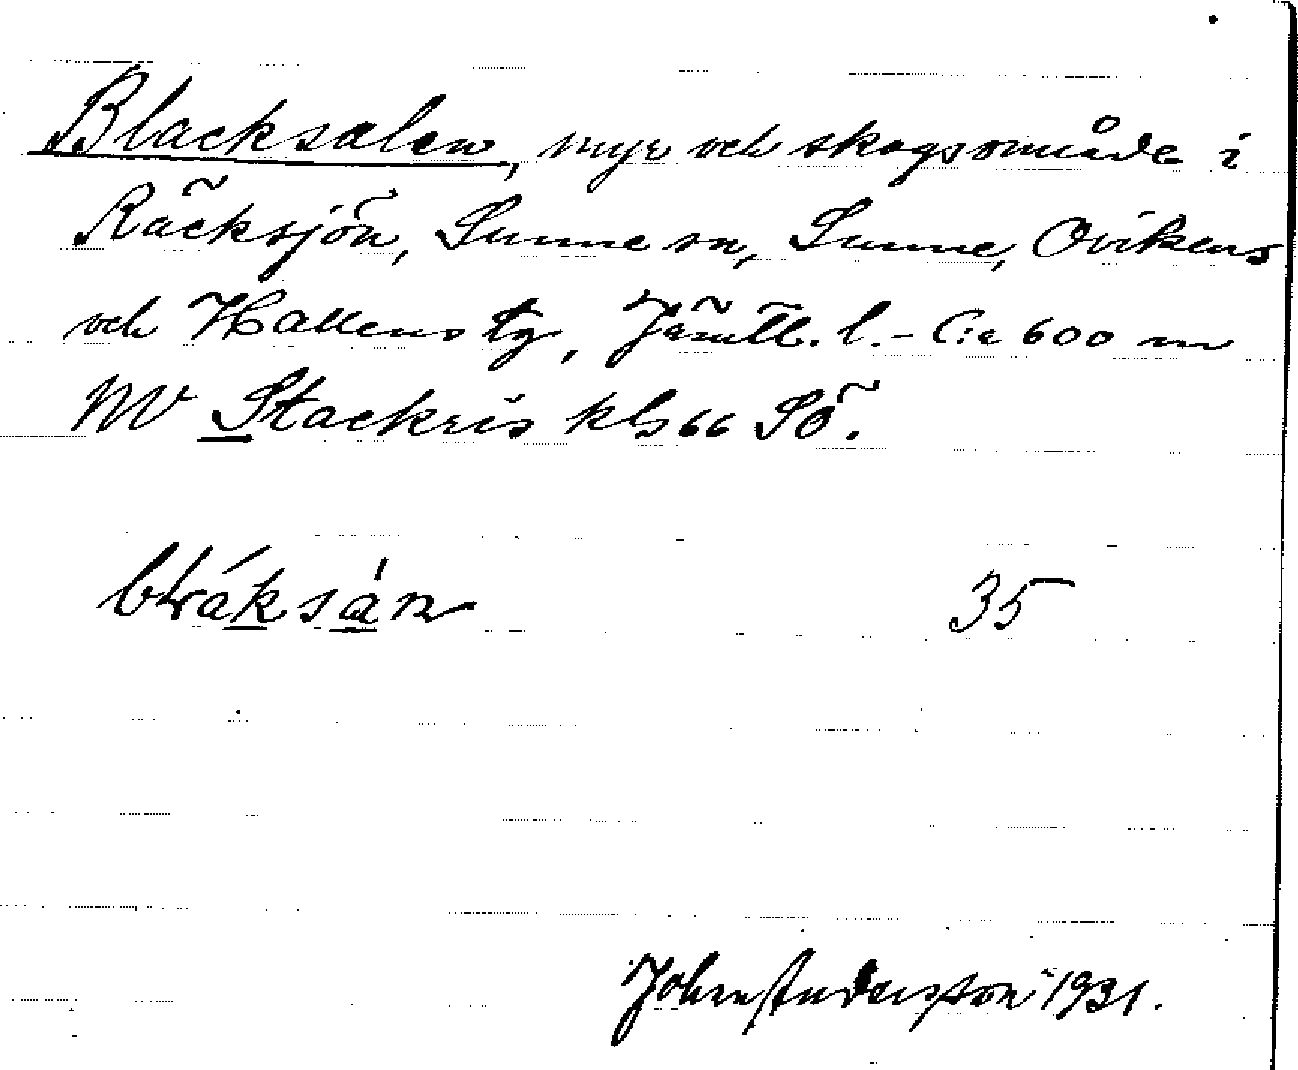 Blacksalen, myr och skogsområde i
Räcksjön, Sunne sn, Sunne, Ovikens
och Hallens tg, Jämtl. l. - C:a 600 m
NV Stackris kbl 66 SÖ.
35
John Andersson 1931.